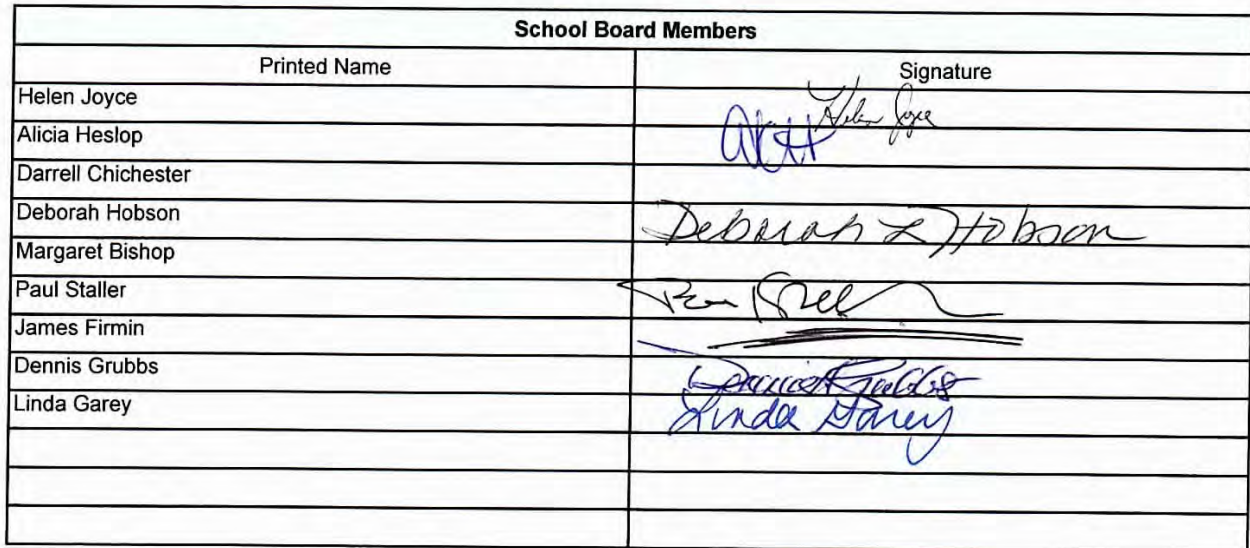 School Board Members
Printed Name Signature
Helen Joyce Helen Joyce
Alicia Heslop
Darrell Chichester
Deborah Hobson Deborah L Hobson
Margaret Bishop
Paul Staller
James Firmin
Dennis Grubbs
Linda Garey Linda Garey